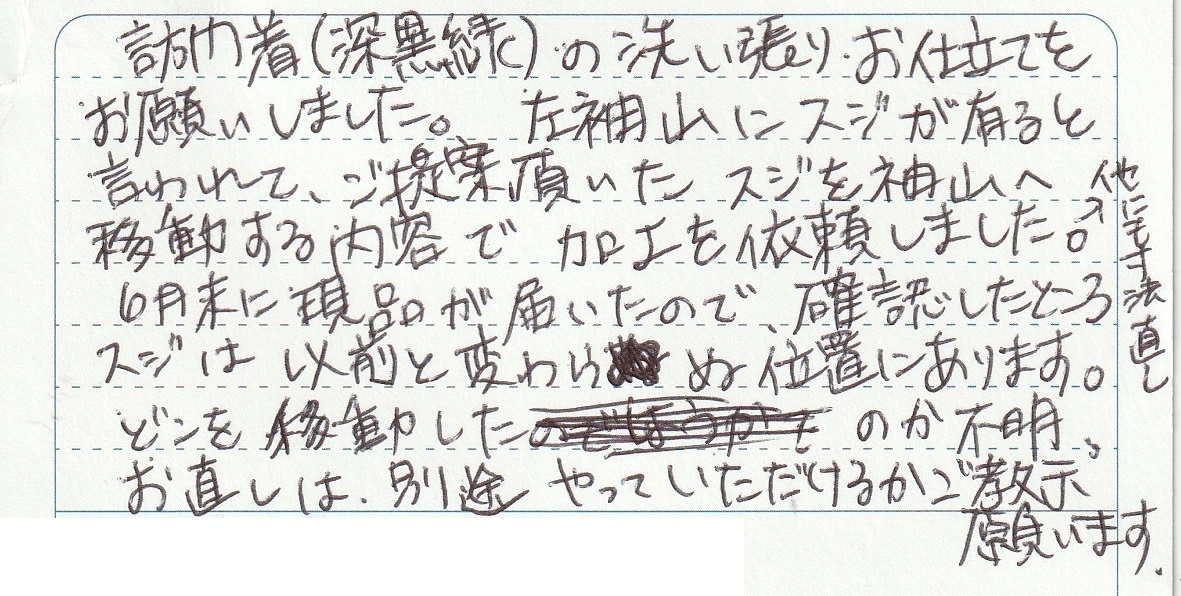 訪問着(深黒緑)の洗い張り・お仕立てを
お願いしました。左袖山にスジが有ると
言われて、ご提案頂いたスジを袖山へ
移動する内容で加工を依頼しました。
他にも寸法直し
6月末に現品が届いたので、確認したところ
スジは以前と変わらぬ位置にあります。
どこを移動したのか不明、
お直しは、別途やっていただけるかご教示
願います.